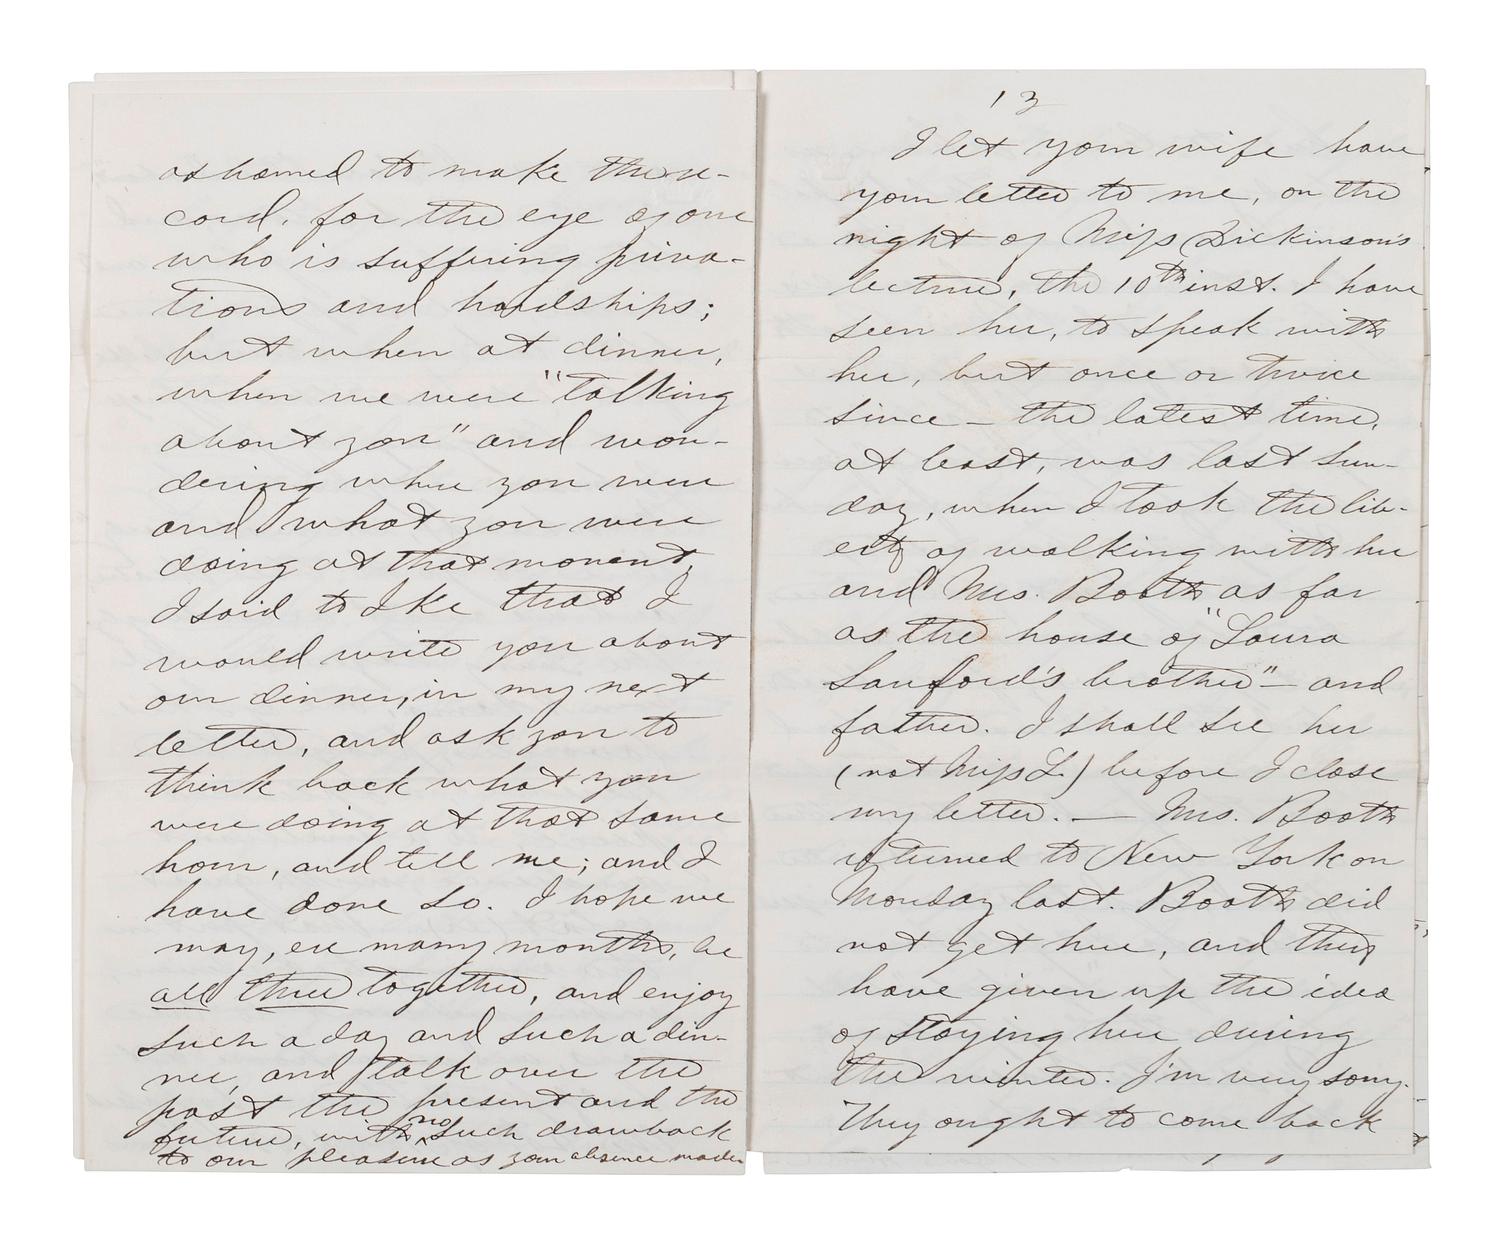 ashamed to make the re-
cord, for the eye of one
who is suffering priva-
tions and hardships;
but when at dinner,
when we were "talking
about you" and won-
dering where you were
and what you were
doing at that moment,
I said to Ike that I
would write you about
our dinner, in my next
letter, and ask you to
think back what you
were doing at that same
hour, and tell me; and I
have done so. I hope we
may, ere many months, be
all three together, and enjoy
such a day and such a din-
ner, and talk over the
past the present and the
future, with no such drawback
to our pleasure as your absence made.
13
I let your wife have
your letter to me, on the
night of Miss Dickinson's
lecture, the 10th inst. I have
seen her, to speak with
her, but once or twice
since – the latest time,
at least, was last Sun-
day, when I took the lib-
erty of walking with her
and Mrs. Booth as far
as the house of "Laura
Sanford's brother" – and
father. I shall see her
(not Miss L.) before I close
my letter. — Mrs. Booth
returned to New York on
Monday last. Booth did
not get here, and they
have given up the idea
of staying here during
the winter. I'm very sorry.
They ought to come back